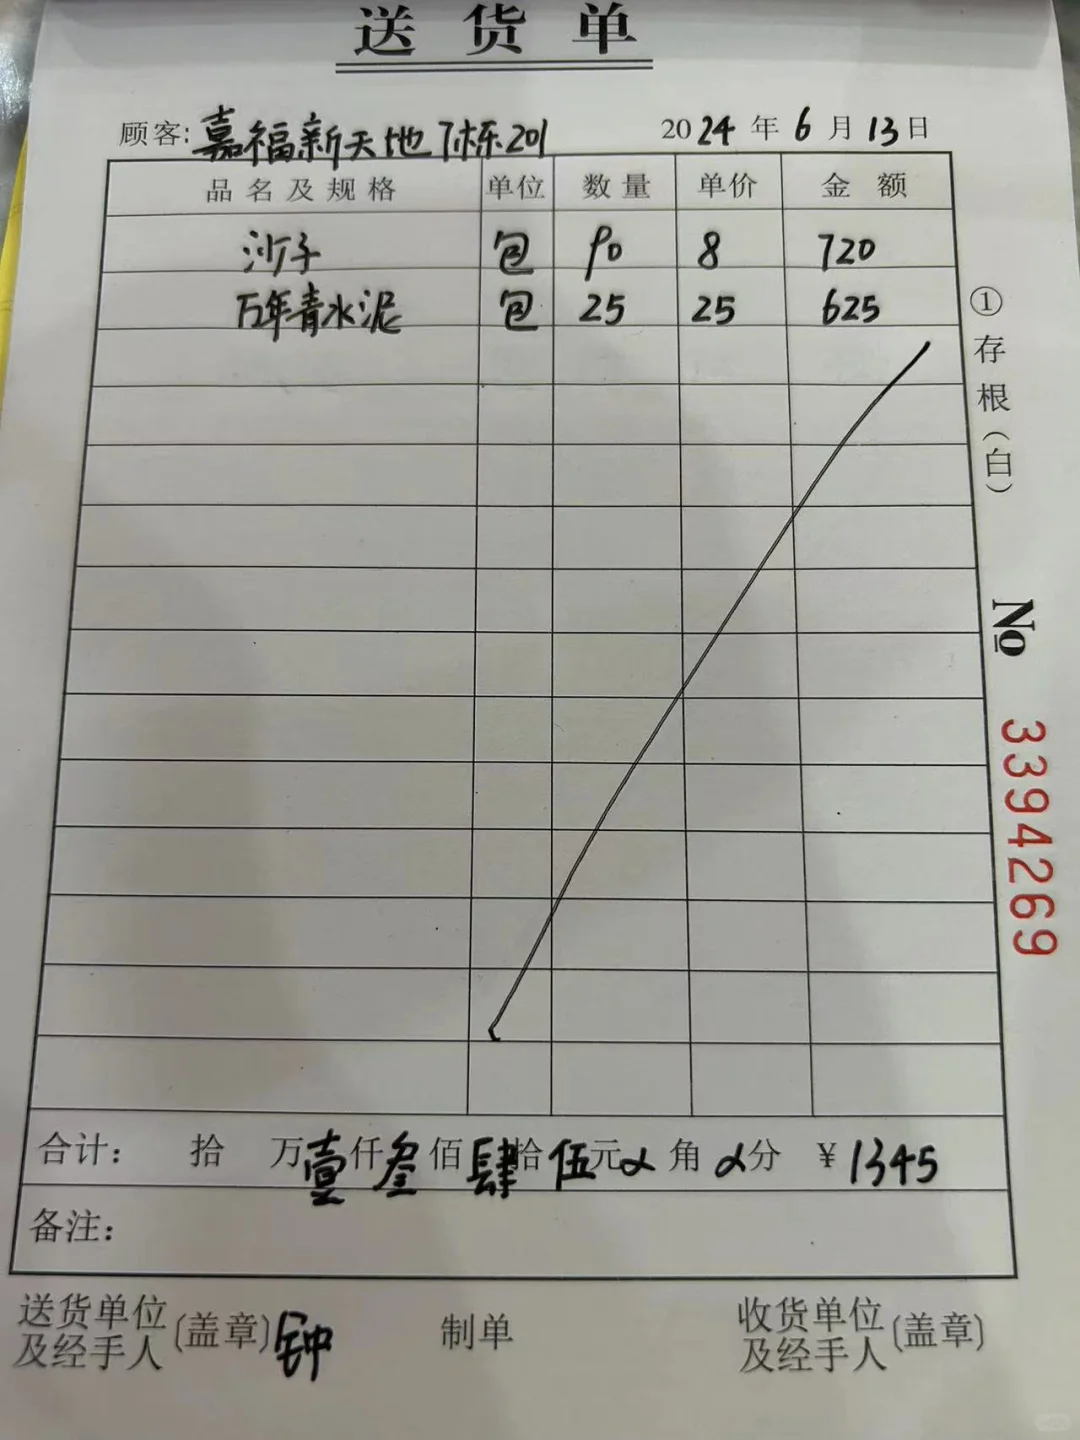 送货单
顾客:嘉福新天地7栋201 2024年6月13日
品名及规格 单位 数量 单价 金额
沙子 包 90 8 720
万年青水泥 包 25 25 625
①存根(白)
№ 3394269
合计: 拾 万壹仟叁佰肆拾伍元 角 分 ¥1345
备注:
送货单位及经手人(盖章)钟 制单 收货单位及经手人(盖章)